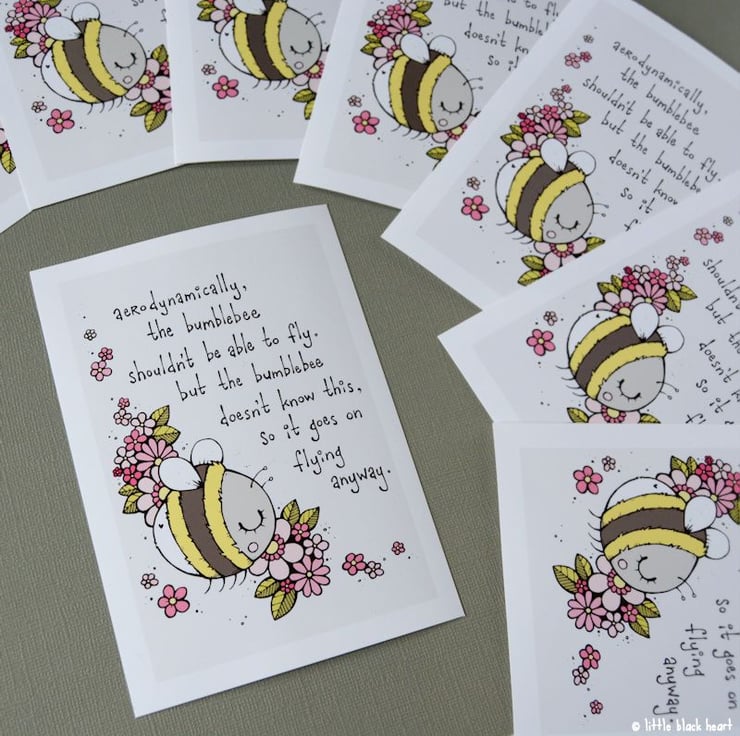 but the
doesn't
so
aerodynamically,
the bumblebee
shouldn't be able to fly.
but the
doesn't know
so it
aerodynamically,
the bumblebee
shouldn't be able to fly.
but the bumblebee
doesn't know this,
so it goes on
flying
anyway.
but
doesn't
so it
so it goes on
flying
anyway.
© little black heart